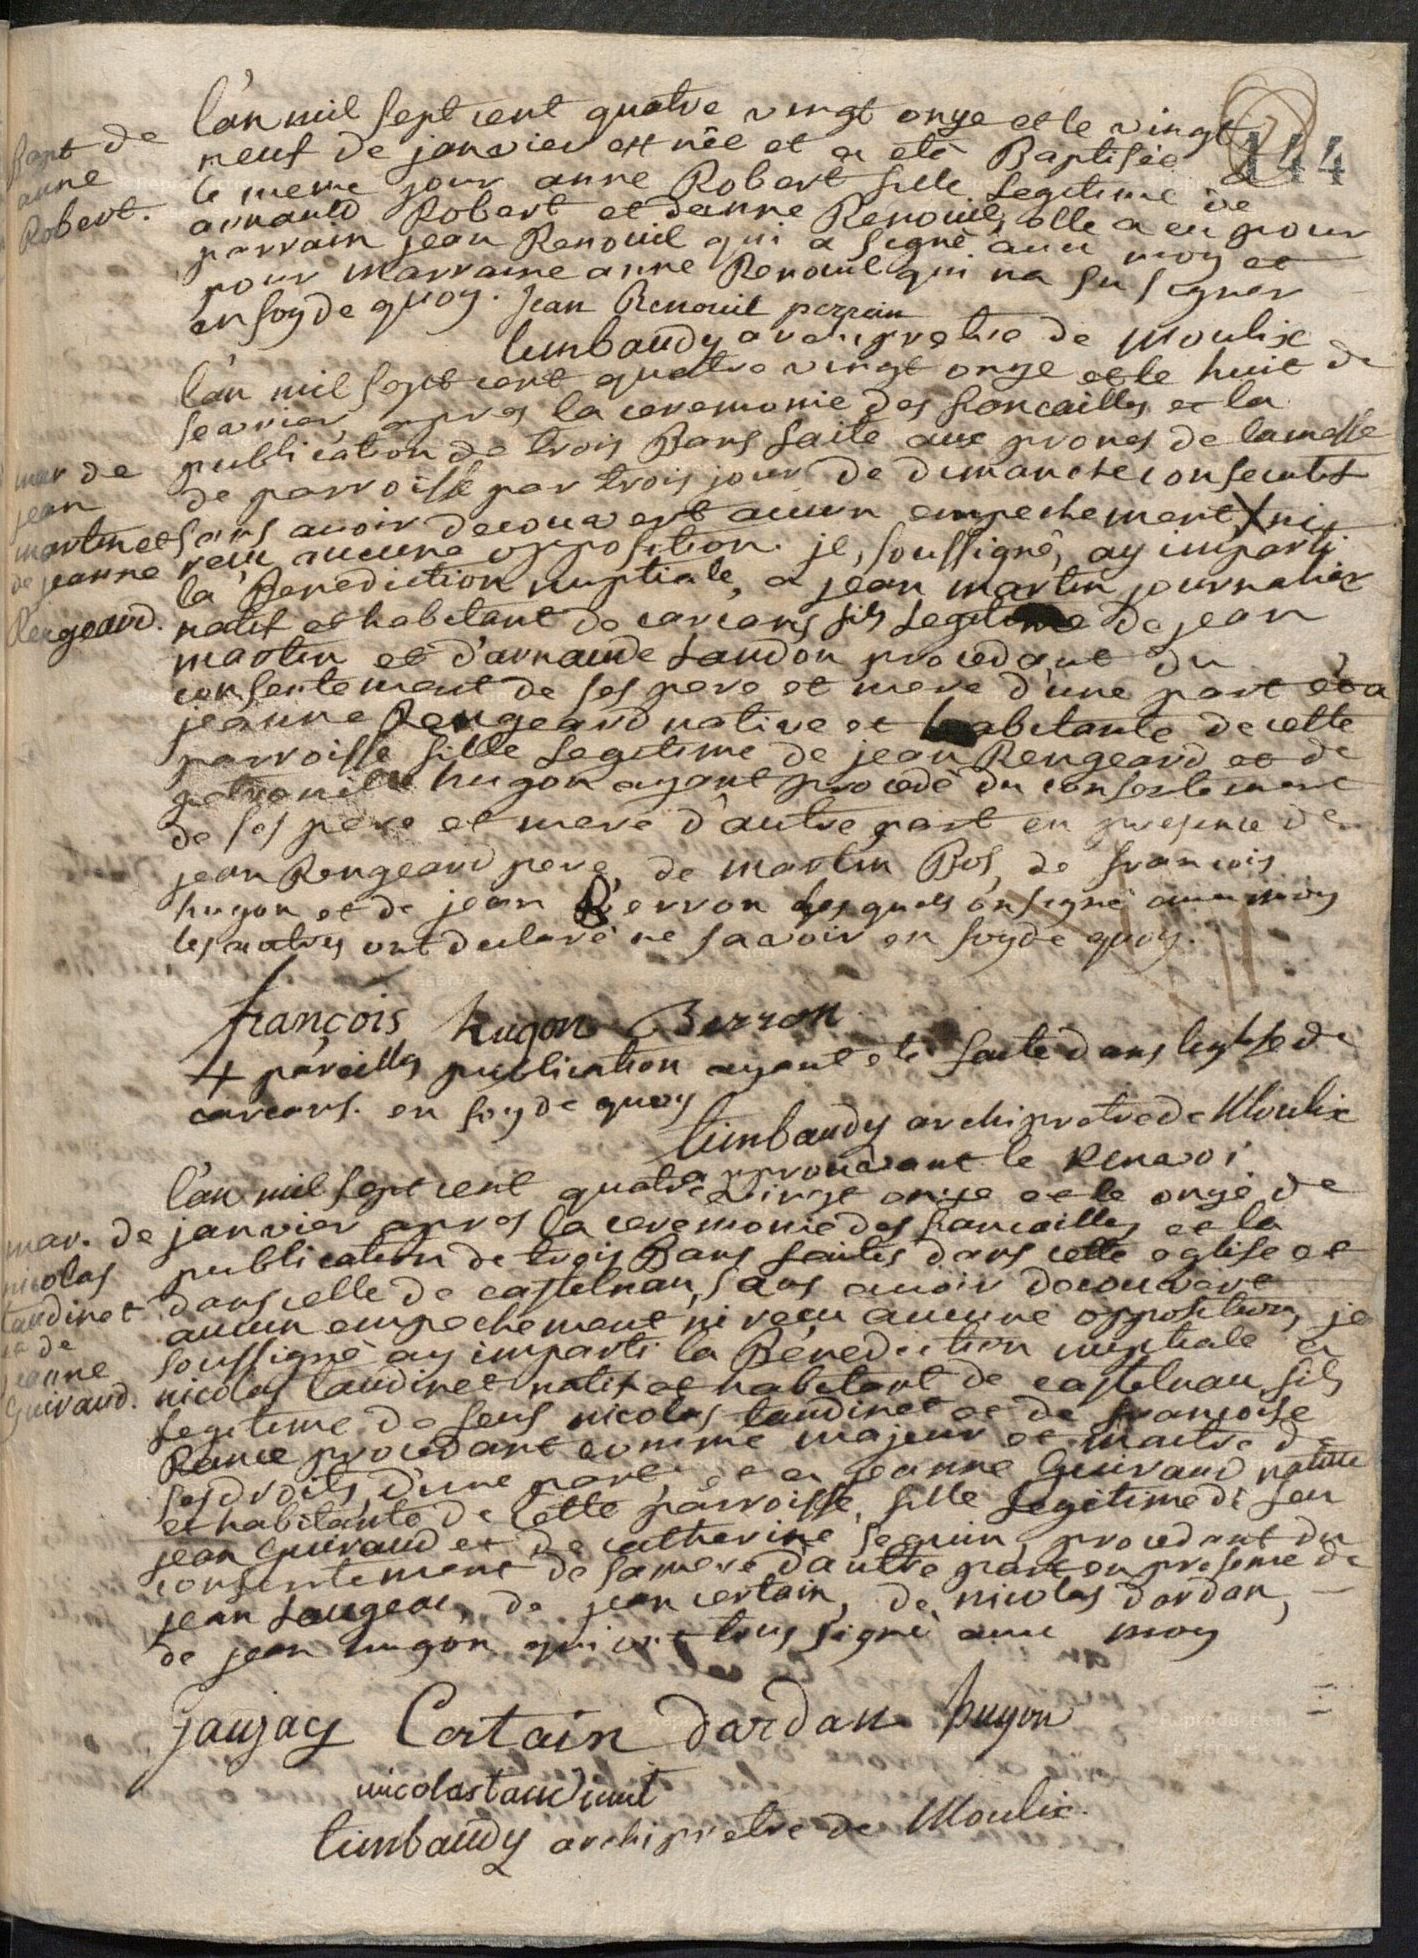 144
Bapt de
anne
Robert.
l'an mil sept cent quatre vingt onze et le vingt
neuf de janvier est née et a eté Baptisée
le meme jour anne Robert fille legitime de
arnauld Robert et danne Renouil, elle a eu pour
parrain jean Renouil qui a signé avec moy et
pour marraine anne Renouil qui na su signer
en foy de quoy. Jean Renouil parrain
limbaudy archipretre de Moulix
mar de
jean
martin et
de jeanne
Rengeard.
l'an mil sept cent quatre vingt onze et le huit de
fevrier, apres la ceremonie des fiancailles et la
publication de trois Bans faite aux prones de la messe
de parroisse par trois jour de dimanche consecutifs
sans avoir decouvert aucun empechement X ni
recu aucune opposition. je, soussigné, ay imparti
la Benediction nuptiale, a jean martin journalier
natif et habitant de carcans fils legitime de jean
martin et d'arnaude landon procedant du
consentement de ses pere et mere d'une part et a
jeanne Rengeard native et habitante de cette
parroisse fille legitime de jean Rengeard et de
petronille hugon ayant procedé du consentement
de ses pere et mere d'autre part en presence de
jean Rengeard pere, de martin Bos, de francois
hugon et de jean Berron lesquels ont signé avec moy
les autres ont declaré ne savoir en foy de quoy.
françois hugon Berron
+ pareilles publication ayant eté faite dans leglise de
carcans. en foy de quoy
limbaudy archipretre de Moulix
approuvant le Renvoi
mar. de
nicolas
taudinet
et de
jeanne
Guiraud.
l'an mil sept cent quatre vingt onze et le onze de
janvier apres la ceremonie des fiancailles et la
publication de trois Bans faites dans cette eglise et
dans celle de castelnau, sans avoir decouvert
aucun empechement ni recu aucune opposition, je
soussigné ay imparti la Benediction nuptiale a
nicolas taudinet natif et habitant de castelnau fils
legitime de feus nicolas taudinet et de francoise
Rance procedant comme majeur et maitre de
ses droits, d'une part, et a jeanne Guiraud native
et habitante de cette parroisse, fille legitime de feu
jean Guiraud et de catherine seguin, procedant du
consentement de sa mere d'autre part en presence de
jean de jean certain, de nicolas dardan,
de jean hugon qui ont tous signé avec moy
jaujacq Certain dardan hugon
nicolas taudinet
limbaudy archipretre de Moulix.